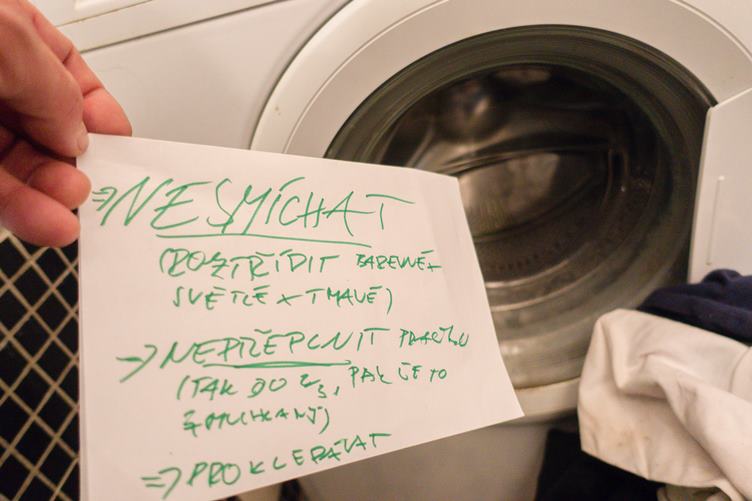 ⇒ NESMÍCHAT
(ROZTŘÍDIT BAREVNÉ +
SVĚTLÉ + TMAVÉ)
→ NEPŘEPLNIT PRAČKU
(TAK DO 2/3, PAK JE TO
ZMUCHLANÝ)
⇒ PROKLEPÁVAT